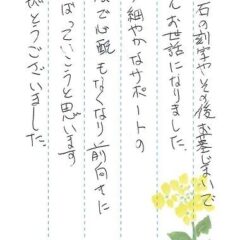 石の刻字やその後お墓じまいで
んお世話になりました。
細やかなサポートの
で心配もなくなり前向きに
ばっていこうと思います
とうございました。